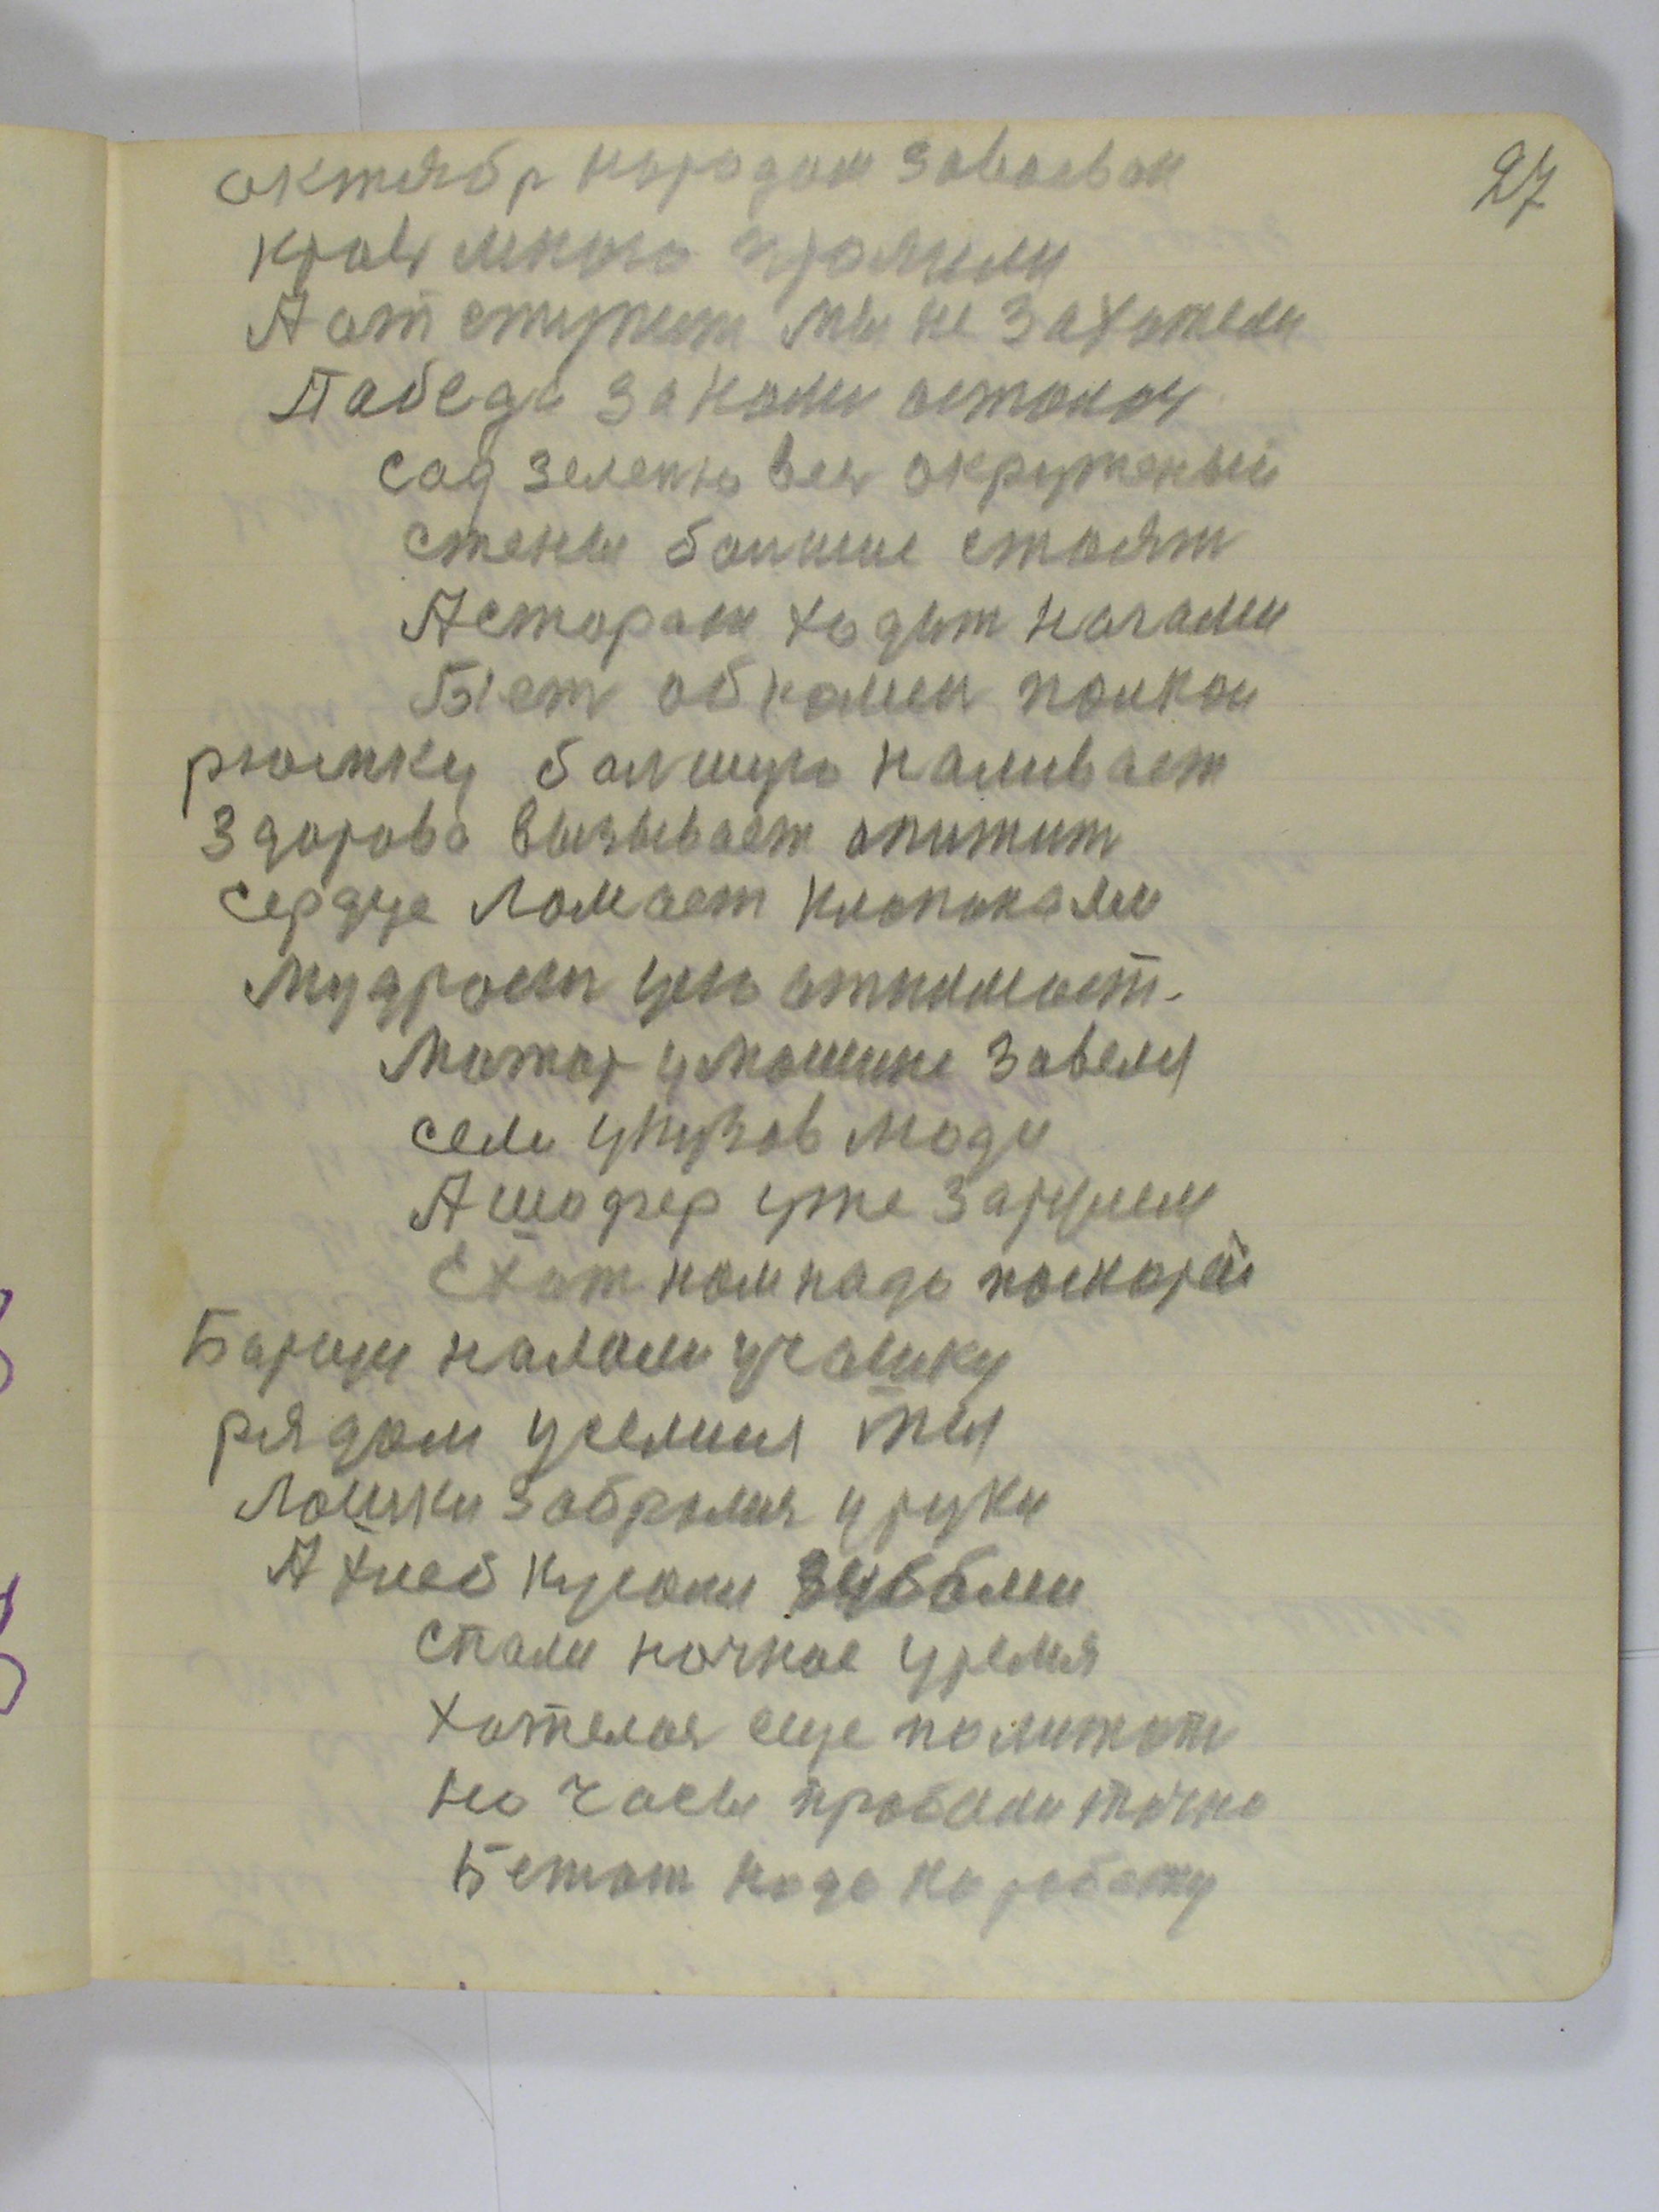 27
октябр народом завоеван
кровь много пролили
А отступит мы не захотели
Пабеда за нами осталас
сад зеленю весь окруженый
стены болшие стоят
А сторож ходит ночами
Бьет об камен палкой
рюмку болшую наливает
Здорово вызывает апитит
сердце ломает клопоками
мудрость ум отнимает.
Мотор у машине завелся
сели у кузов люди
А шофер уже за рулем
Ехат нам надо поскорей
Борщу налили у чашку
рядом уселися все
Ложки забралися у руки
А хлеб кусали зубами
Спали ночное уремя
хотелос еще полижат
Но часы пробили точно
Бежат надо на работу